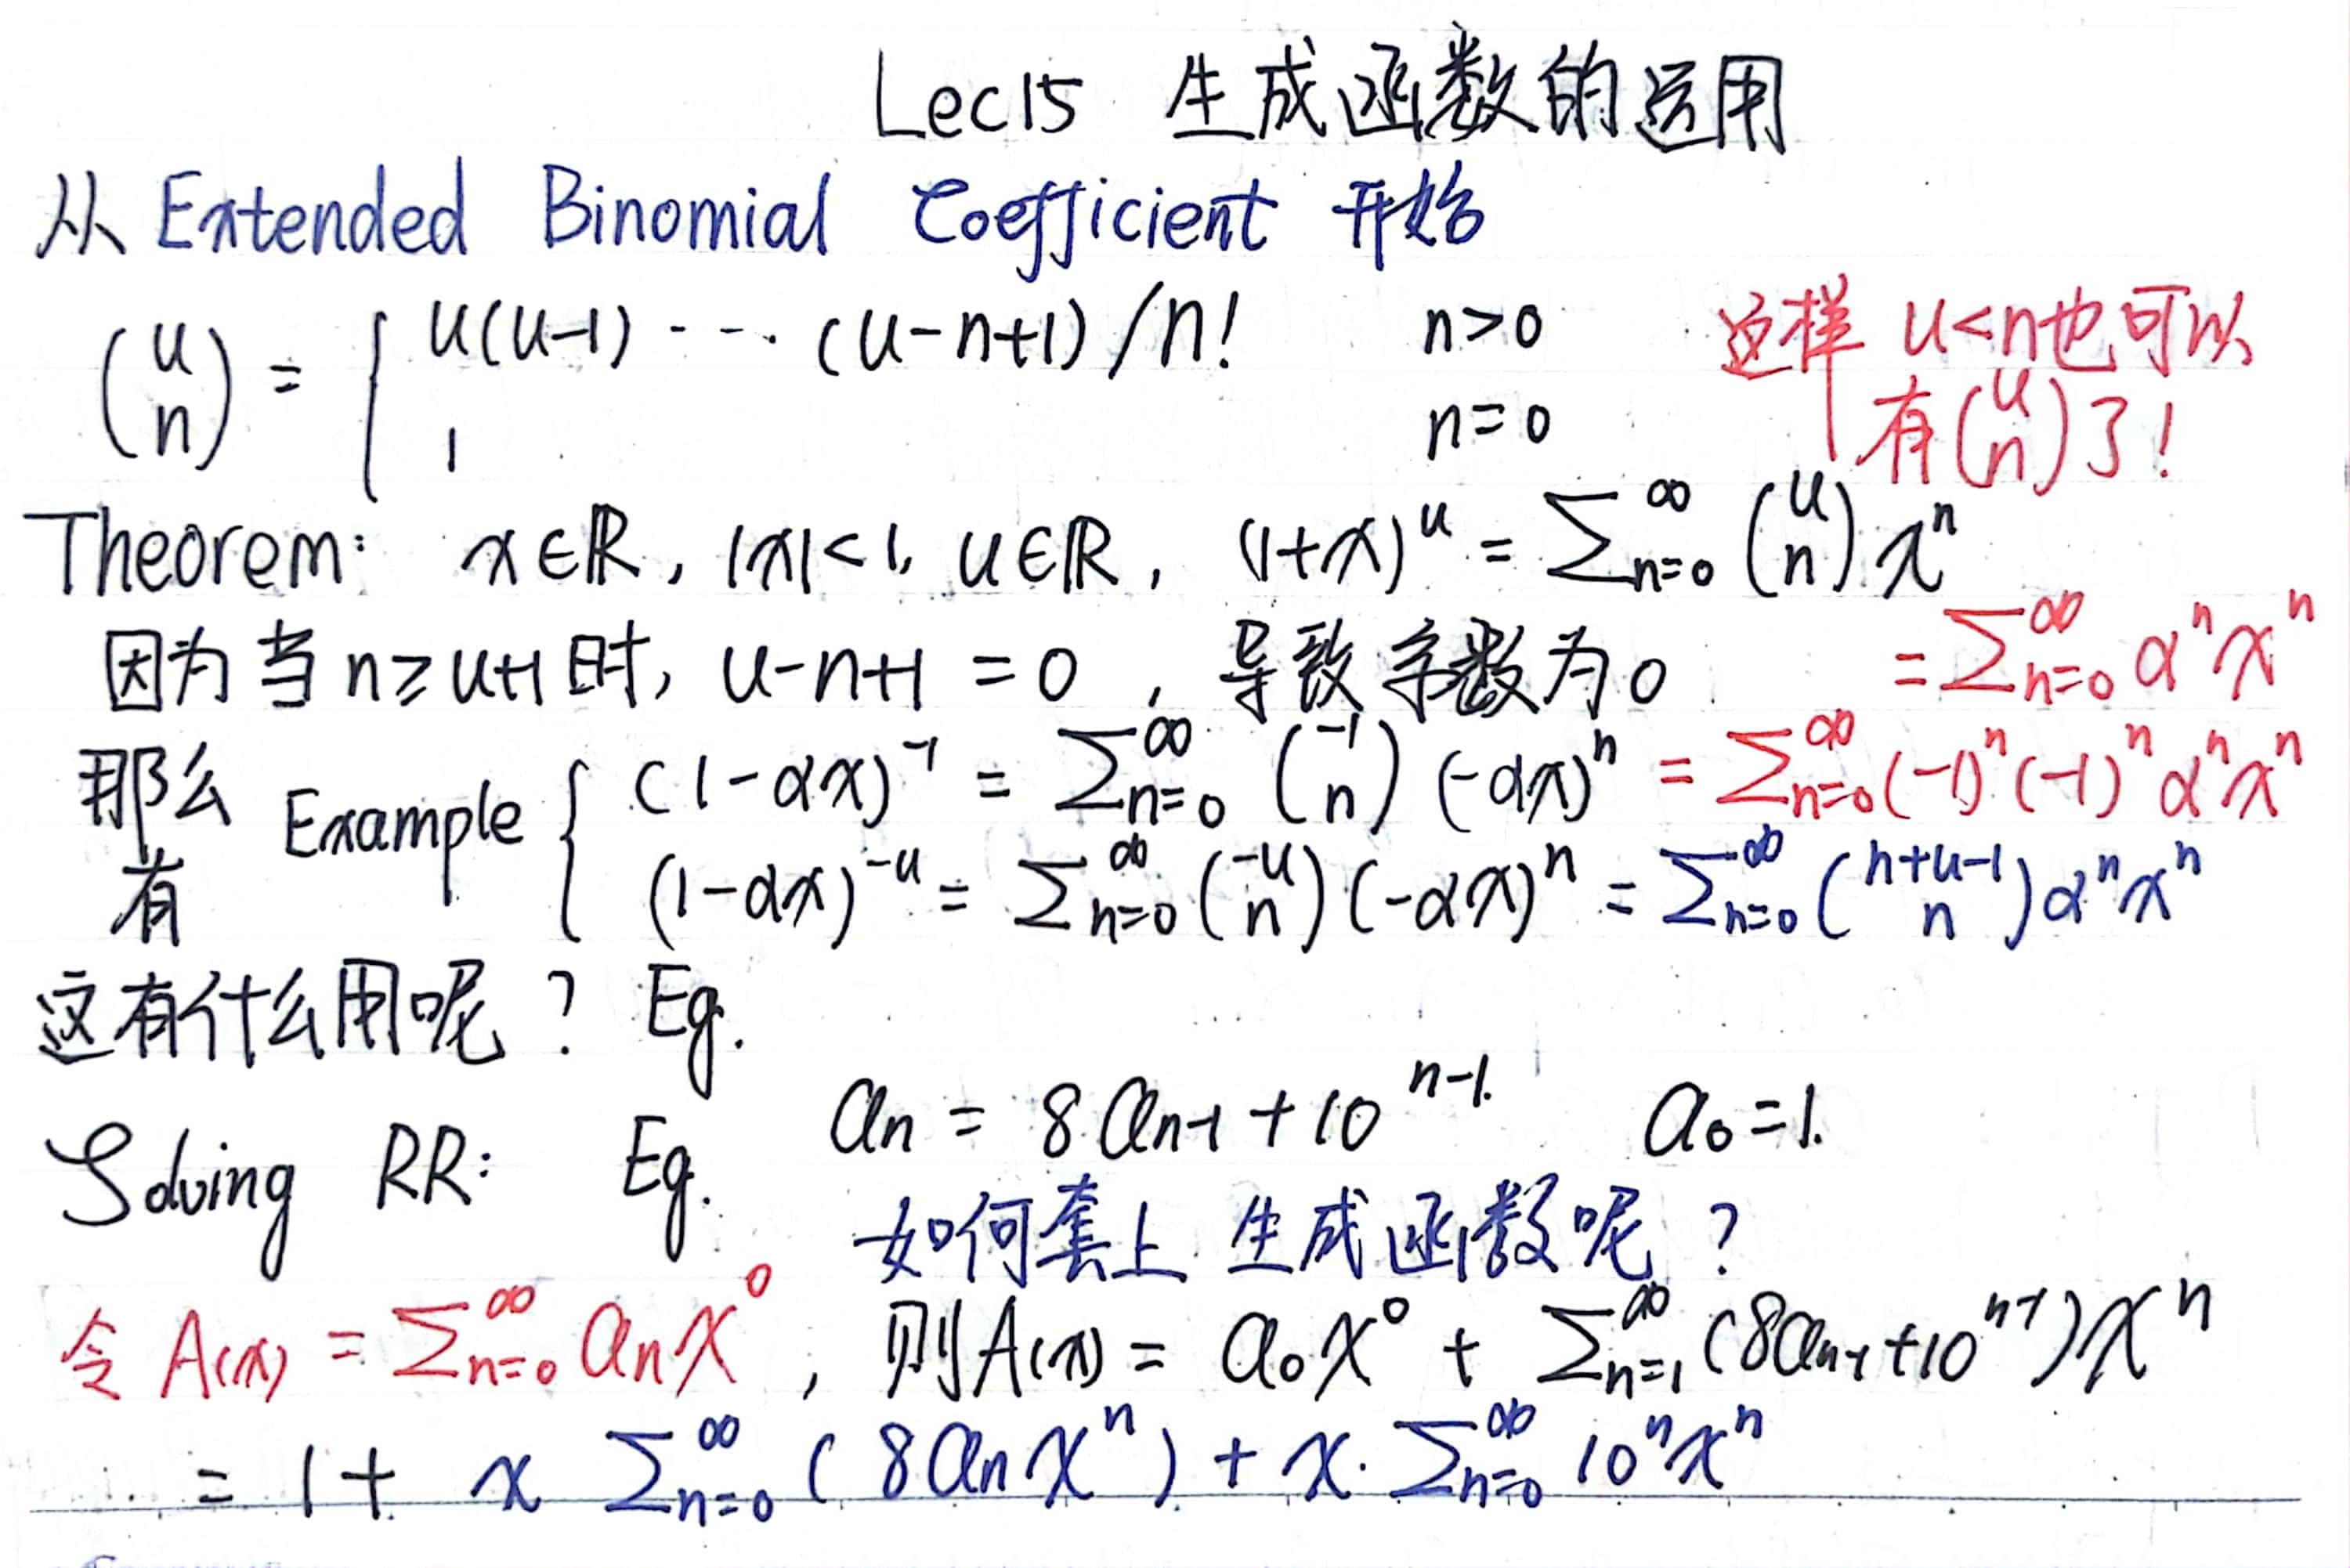 Lec15 生成函数的运用
从 Extended Binomial Coefficient 开始
(u n) = { u(u-1) --- (u-n+1)/n! n>0
1 n=0
这样 u<n也可以
有(u n)了!
Theorem: x∈ℝ, |x|<1, u∈ℝ, (1+x)^u = ∑_{n=0}^∞ (u n) x^n
因为当 n≥u+1时, u-n+1 = 0, 导致系数为0
那么有 Example { (1-αx)^{-1} = ∑_{n=0}^∞ (-1 n) (-αx)^n = ∑_{n=0}^∞ (-1)^n (-1)^n α^n x^n
= ∑_{n=0}^∞ α^n x^n
(1-αx)^{-u} = ∑_{n=0}^∞ (-u n) (-αx)^n = ∑_{n=0}^∞ (n+u-1 n) α^n x^n
这有什么用呢? Eg.
Solving RR: Eg. a_n = 8a_{n-1} + 10^{n-1}. a_0 = 1.
如何套上生成函数呢?
令 A(x) = ∑_{n=0}^∞ a_n x^0, 则A(x) = a_0 x^0 + ∑_{n=1}^∞ (8a_{n-1} + 10^{n-1}) x^n
= 1 + x ∑_{n=0}^∞ (8a_n x^n) + x· ∑_{n=0}^∞ 10^n x^n